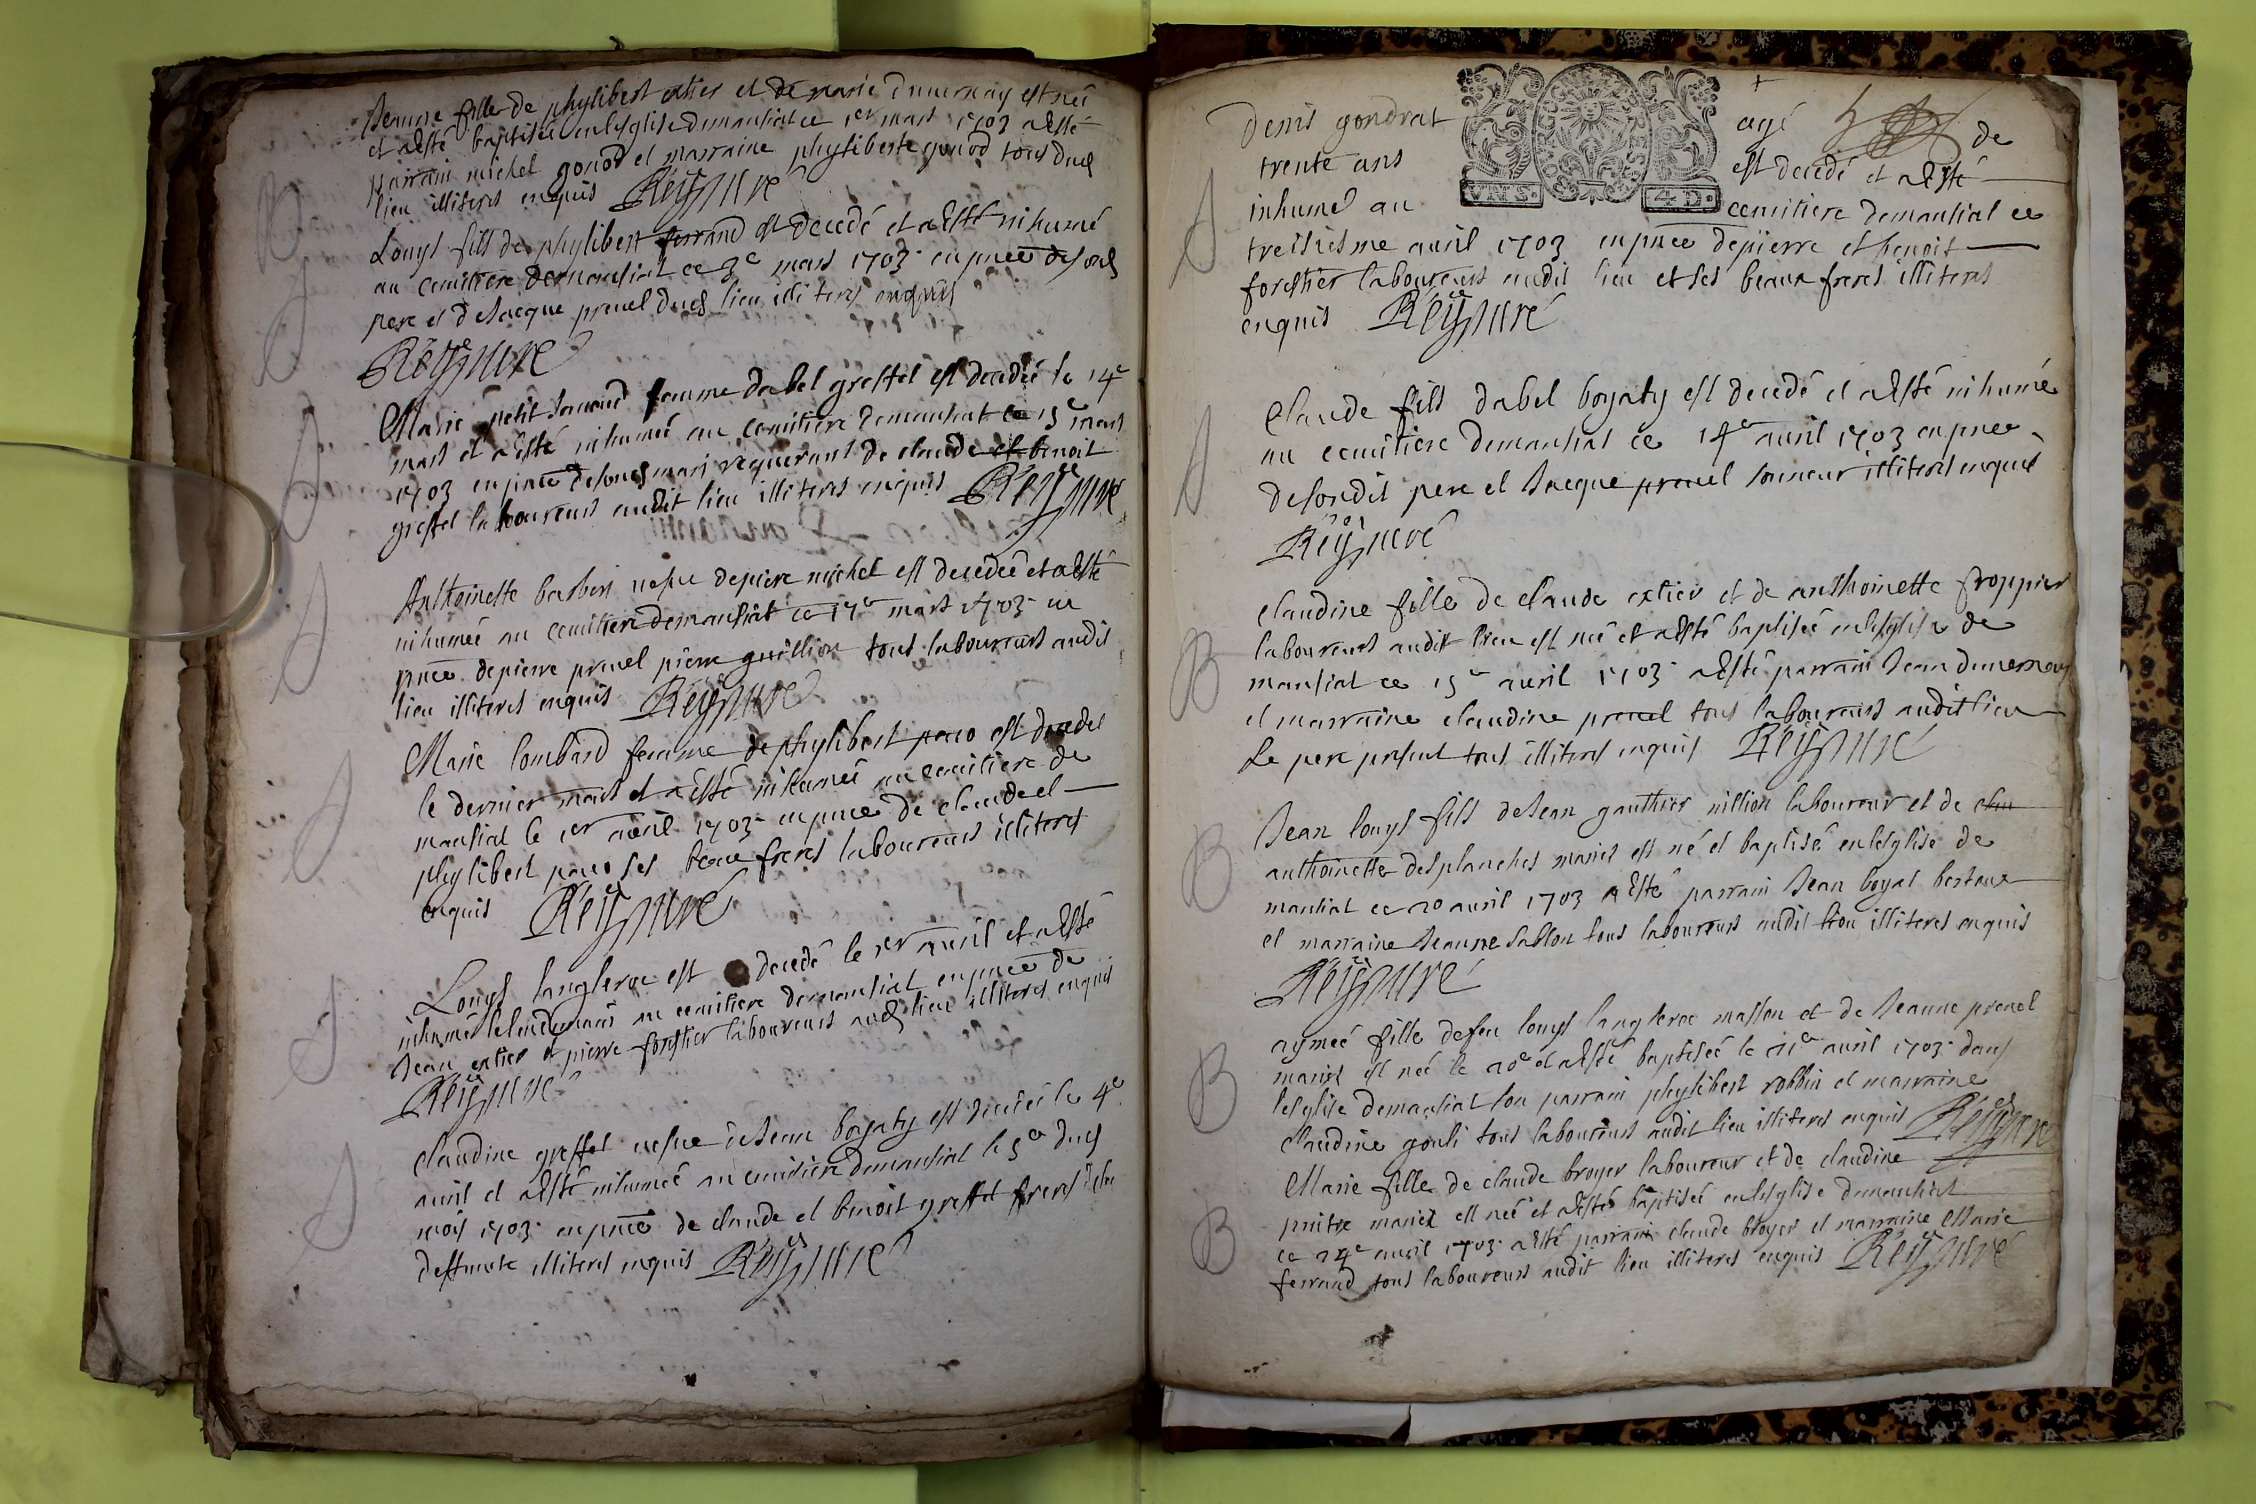 Jeanne fille de phylibert extier et de marie duvernay est née
et a esté baptisée en leglise demantiat ce 1er mars 1703 a esté
parrain michel gonod et marraine phyliberte gonod tous dud
lieu illiteres enquis Rey curé
B
Louys fils de phylibert ferrand est decedé et a esté inhumé
au cemitiere demantiat ce 3e mars 1703 en pnce de sond
pere et de Jacque prevel dud lieu illiteres enquis
Rey curé
Marie petit femme dabel greffet est decedée le 14e
mars et a esté inhumée au cemitiere demantiat ce 15e mars
1703 en pnce de son mari requerant de claude et benoit
greffet laboureurs audit lieu illiteres enquis Rey curé
Anthoinette barberi vefve de pierre michel est decedée et a esté
inhumée au cemitiere demantiat ce 17e mars 1703 en
pnce de pierre prevel pierre guillion tous laboureurs audit
lieu illiteres enquis Rey curé
Marie lombard femme de phylibert est decedée
le dernier mars et a esté inhumée au cemitiere de
mantiat le 1er avril 1703 en pnce de claude et
phylibert ses beaux freres laboureurs illiteres
enquis Rey curé
Louys langleroc est decedé le 1er avril et a esté
inhumé le lendemain au cemitiere demantiat en pnce de
Jean extier et pierre forestier laboureurs aud lieu illiteres enquis
Rey curé
claudine greffet vefve de Jean boyaty est decedée le 4e
avril et a esté inhumée au cemitiere demantiat le 5e dud
mois 1703 en pnce de claude et benoit greffet freres de la
deffunte illiteres enquis Rey curé
VN.S. 4.D.
Denis gondrat agé de
trente ans est decedé et a esté
inhumé au cemitiere demantiat ce
treisiesme avril 1703 en pnce de pierre et benoit
forestier laboureurs audit lieu et ses beaux freres illiteres
enquis Rey curé
Claude fils dabel boyaty est decedé et a esté inhumé
au cemitiere demantiat ce 14e avril 1703 en pnce
de sondit pere et Jacque prevel sonneur illiteres enquis
Rey curé
claudine fille de claude extier et de anthoinette froppier
laboureurs audit lieu est née et a esté baptisée en leglise de
B
mantiat ce 15e avril 1703 a esté parrain Jean duvernay
et marraine claudine prevel tous laboureurs audit lieu
Le pere present tous illiteres enquis Rey curé
Jean louys fils de Jean gauthier million laboureur et de
B
anthoinette desplanches mariés est né et baptisé en leglise de
mantiat ce 20 avril 1703 a esté parrain Jean boyat
et marraine Jeanne sablon tous laboureurs audit lieu illiteres enquis
Rey curé
aymée fille de feu louys langleroc masson et de Jeanne prevel
B
mariés est née le 20e et a esté baptisée le 21e avril 1703 dans
leglise demantiat son parrain phylibert robbin et marraine
claudine gouli tous laboureurs audit lieu illiteres enquis Rey curé
Marie fille de claude broyer laboureur et de claudine
B
mariés est née et a esté baptisée en leglise demantiat
ce 24e avril 1703 a esté parrain claude broyer et marraine Marie
ferrand tous laboureurs audit lieu illiteres enquis Rey curé